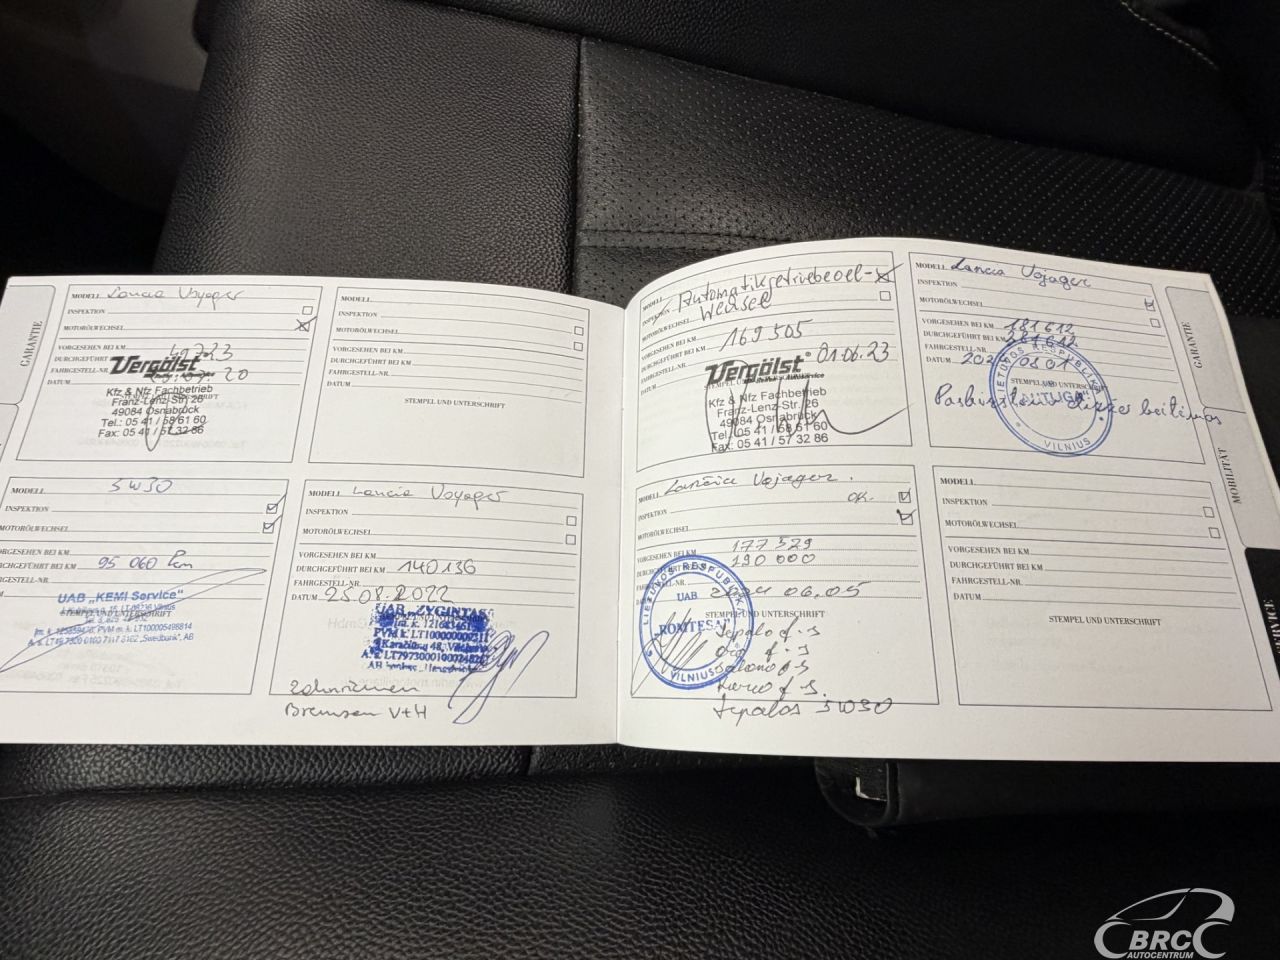 GARANTIE
MODELL Lancia Voyager
INSPEKTION
MOTORÖLWECHSEL
VORGESEHEN BEI KM
DURCHGEFÜHRT
FAHRGESTELL-NR.
DATUM
Vergölst
Kfz & Nfz Fachbetrieb
Franz-Lenz-Str. 26
49084 Osnabrück
Tel.: 05 41 / 58 61 60
Fax: 05 41 / 57 32 86
MODELL
INSPEKTION
MOTORÖLWECHSEL
VORGESEHEN BEI KM
DURCHGEFÜHRT BEI KM
FAHRGESTELL-NR.
DATUM
STEMPEL UND UNTERSCHRIFT
MODELL 5W30
INSPEKTION
MOTORÖLWECHSEL
VORGESEHEN BEI KM
DURCHGEFÜHRT BEI KM 95 060 Km
UAB „KEMI Service"
MODELL Lancia Voyager
INSPEKTION
MOTORÖLWECHSEL
VORGESEHEN BEI KM
DURCHGEFÜHRT BEI KM 140136
FAHRGESTELL-NR.
DATUM 25.08.2022
UAB „ZYGINTAS
Zahnriemen
Bremsen V+H
MODELL Automatikgetriebeoel-
INSPEKTION Wechsel
MOTORÖLWECHSEL
VORGESEHEN BEI KM 169505
DURCHGEFÜHRT BEI KM
FAHRGESTELL-NR.
DATUM 01.06.23
Vergölst
Kfz & Nfz Fachbetrieb
Franz-Lenz-Str. 26
49084 Osnabrück
Tel.: 05 41 / 58 61 60
Fax: 05 41 / 57 32 86
MODELL Lancia Vojager
INSPEKTION
MOTORÖLWECHSEL
VORGESEHEN BEI KM 181612
DURCHGEFÜHRT BEI KM 181612
FAHRGESTELL-NR.
DATUM
STEMPEL UND UNTERSCHRIFT
LIETUVOS RESPUBLIKA
VILNIUS
GARANTIE
MOBILITÄT
SERVICE
MODELL Vojager.
INSPEKTION OK.
MOTORÖLWECHSEL
VORGESEHEN BEI KM 177529
DURCHGEFÜHRT BEI KM 190000
FAHRGESTELL-NR.
DATUM 2024 06.05
LIETUVOS RESPUBLIKA
UAB
„ROMITESA"
VILNIUS
STEMPEL UND UNTERSCHRIFT
Tepalo f-s
Oro f-s
Salono f-s
Kuro f-s.
tepalas 5W30
MODELL
INSPEKTION
MOTORÖLWECHSEL
VORGESEHEN BEI KM
DURCHGEFÜHRT BEI KM
FAHRGESTELL-NR.
DATUM
STEMPEL UND UNTERSCHRIFT
BRC
AUTOCENTRUM